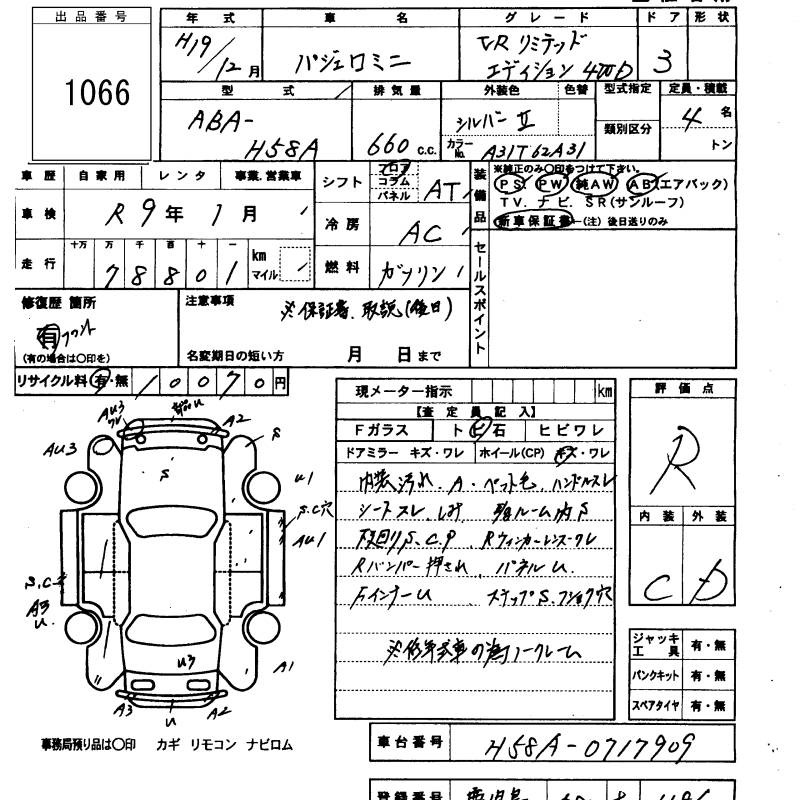 出品番号
1066
年式 車名 グレード ドア 形状
H19/12月 パジェロミニ VRリミテッド エディション 4WD 3
型式 排気量 外装色 色替 型式指定 定員・積載
類別区分
ABA-H58A 660 c.c. シルバーII カラーNo. A31T62A31 4名
トン
車歴 自家用 レンタ 事業、営業車
車検 R9年1月
走行 十万 万 千 百 十 一
78801 km マイル
シフト フロア コラム パネル AT
冷房 AC
燃料 ガソリン
装備品
※純正のみ〇印をつけて下さい。
PS. PW. 純AW. AB(エアバック)
TV. ナビ. SR(サンルーフ)
新車保証書-(注)後日送りのみ
セールスポイント
修復歴 箇所
有 フロント
(有の場合は〇印を)
注意事項
※保証書、取説(後日)
名変期日の短い方 月 日まで
リサイクル料 有・無 10070円
現メーター指示 km
【査定員記入】
Fガラス トビ石 ヒビワレ
ドアミラー キズ・ワレ ホイール(CP) キズ・ワレ
内装汚れ、A・ペット毛、ハンドルスレ
シートスレ、しみ 荷ルーム内S
下回りS、C、P Rウィンカーレンズワレ
Rバンパー押され、パネルU
Fインナー U ステップS、フショク穴
※修復歴車の為ノークレーム
評価点
R
内装 外装
C D
ジャッキ工具 有・無
パンクキット 有・無
スペアタイヤ 有・無
AU3
ワレ
A2
AU3
S
S
U1
S.C穴
AU1
S.C
A3
U
U3
A1
A3
U
A2
事務局預り品は〇印 カギ リモコン ナビロム
車台番号 H58A-0717909
登録番号 鹿児島